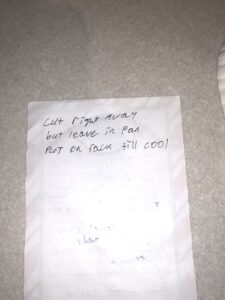 Cut right away
but leave in pan
Put on rack till cool